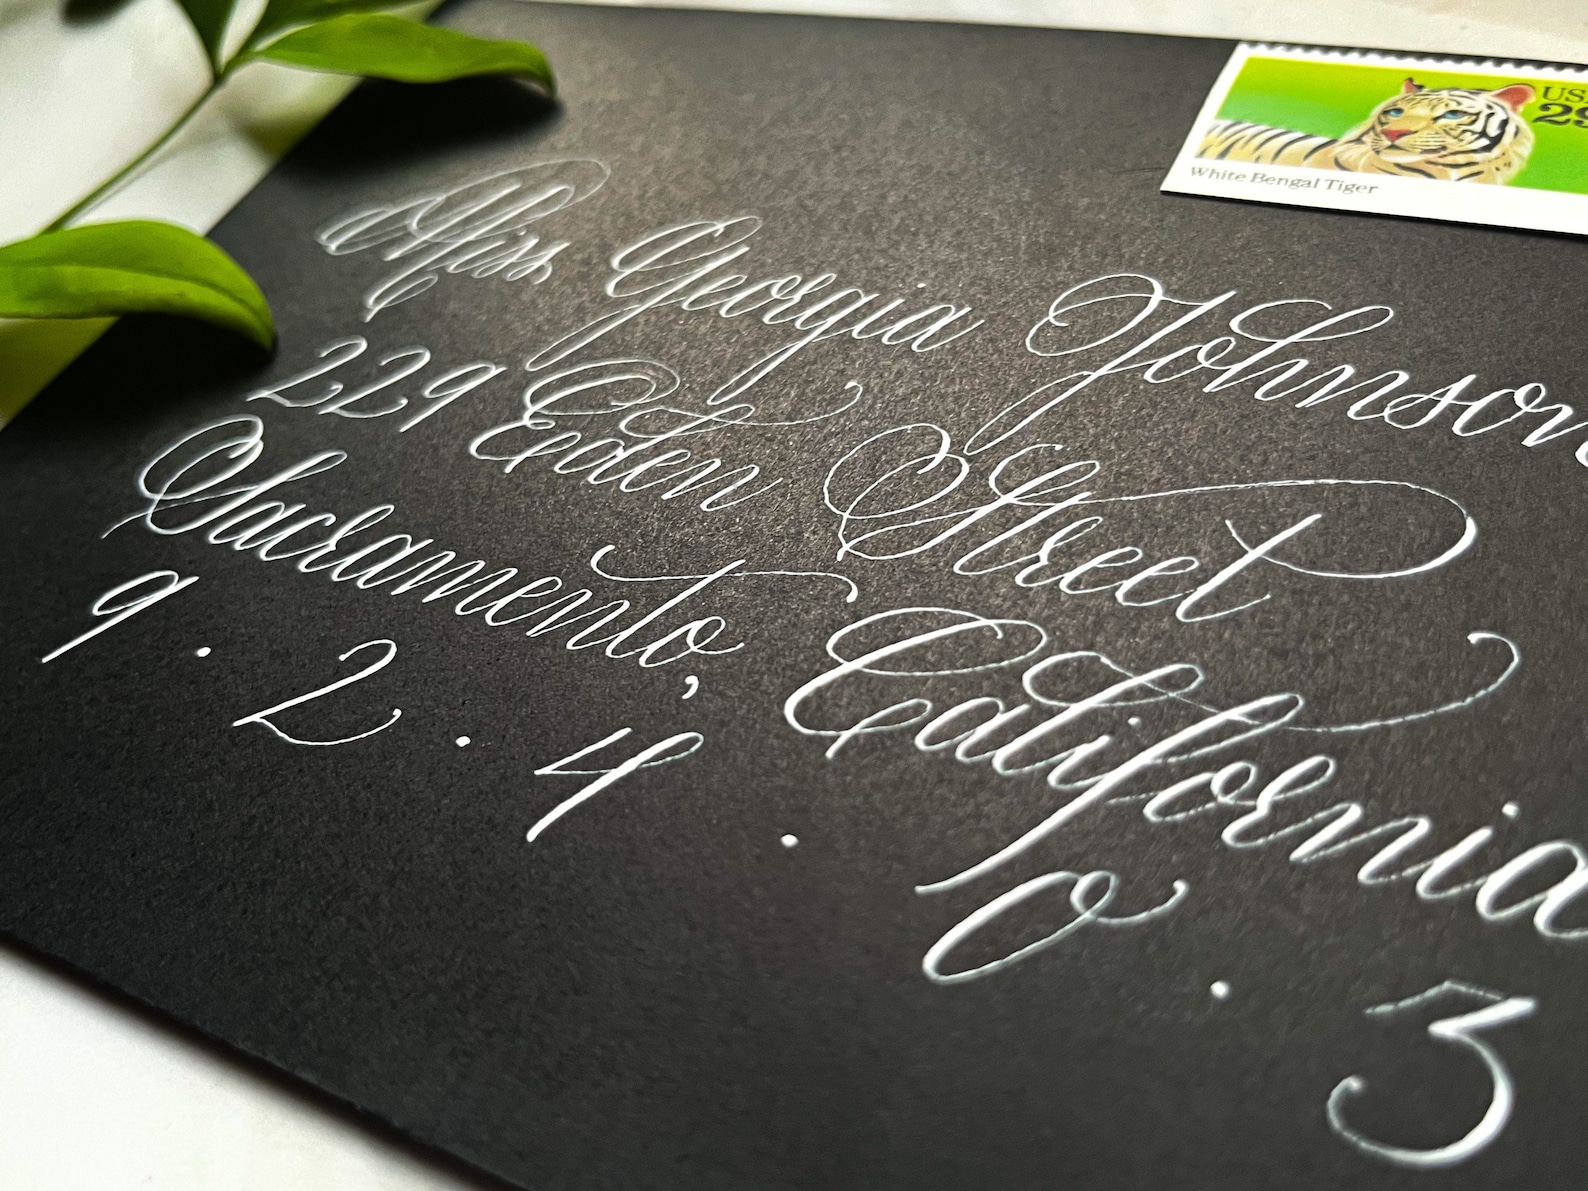 US
29
White Bengal Tiger
Miss Georgia Johnson
229 Eden Street
Sacramento, California
9.2.4.0.3